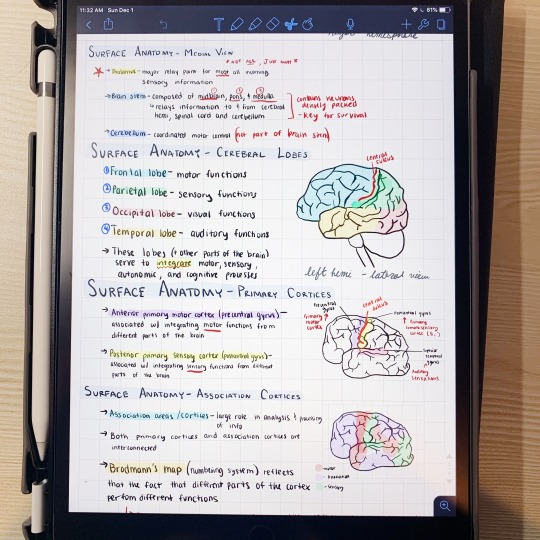 11:32 AM Sun Dec 1
81%
hemisphere
SURFACE ANATOMY - MEDIAL VIEW
* NOT ALL, JUST MOST *
→ Thalamus - major relay point for most all incoming
sensory information
→ Brain stem - composed of midbrain, pons, + medulla
1 2 3
↳ relays information to + from cerebral
hemi, spinal cord and cerebellum
contains neurons
densely packed
- key for survival
→ Cerebellum - coordinated motor control (not part of brain stem)
SURFACE ANATOMY - CEREBRAL LOBES
① Frontal lobe - motor functions
② Parietal lobe - sensory functions
③ Occipital lobe - visual functions
④ Temporal lobe - auditory functions
→ These lobes (+ other parts of the brain)
serve to integrate motor, sensory,
autonomic, and cognitive processes
central
sulcus
left hemi - lateral view
SURFACE ANATOMY - PRIMARY CORTICES
→ Anterior primary motor cortex (precentral gyrus) -
associated w/ integrating motor functions from
different parts of the brain
→ Posterior primary sensory cortex (postcentral gyrus) -
associated w/ integrating sensory functions from different
parts of the brain
precentral
gyrus
primary
motor
cortex
central
sulcus
postcentral gyrus
primary
somatosensory
cortex (S1)
superior
temporal
gyrus
SURFACE ANATOMY - ASSOCIATION CORTICES
→ Association areas/cortices - large role in analysis + processing
of info
→ Both primary cortices and association cortices are
interconnected
→ Brodmann's map (numbering system) reflects
that the fact that different parts of the cortex
perform different functions
- motor
- sensory